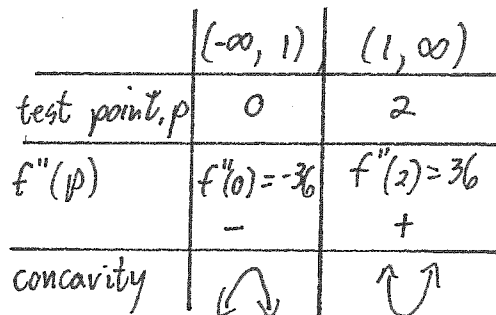 (-∞, 1) (1, ∞)
test point, p 0 2
f"(p) f"(0) = -36 f"(2) = 36
- +
concavity